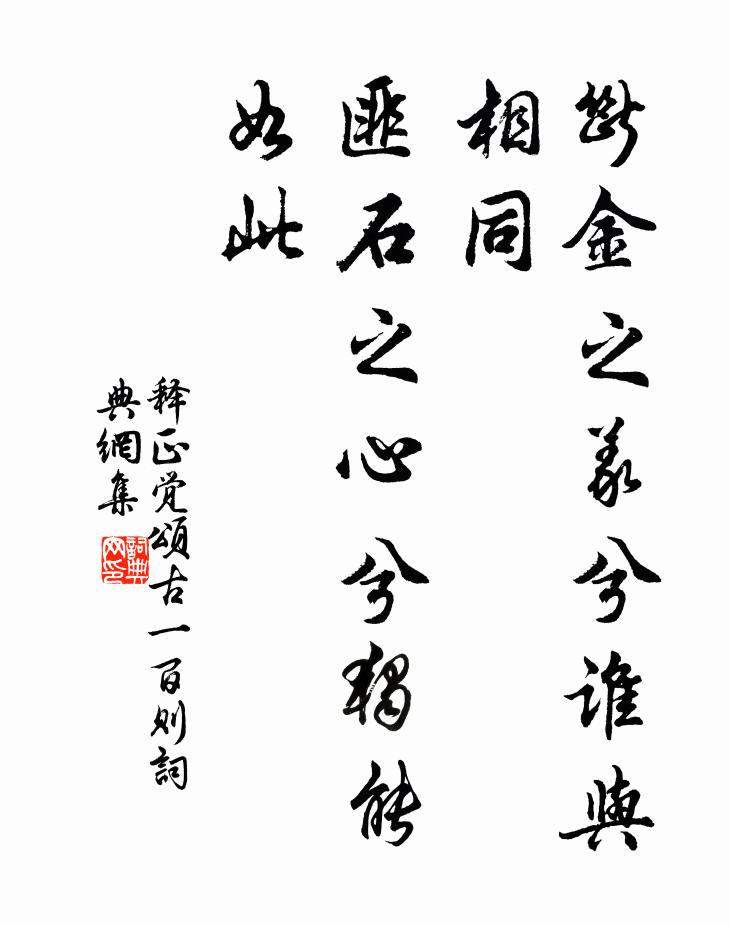 斷金之義兮誰與
相同
匪石之心兮獨能
如此
释正觉頌古一百则詞
典網集
詞典
网印